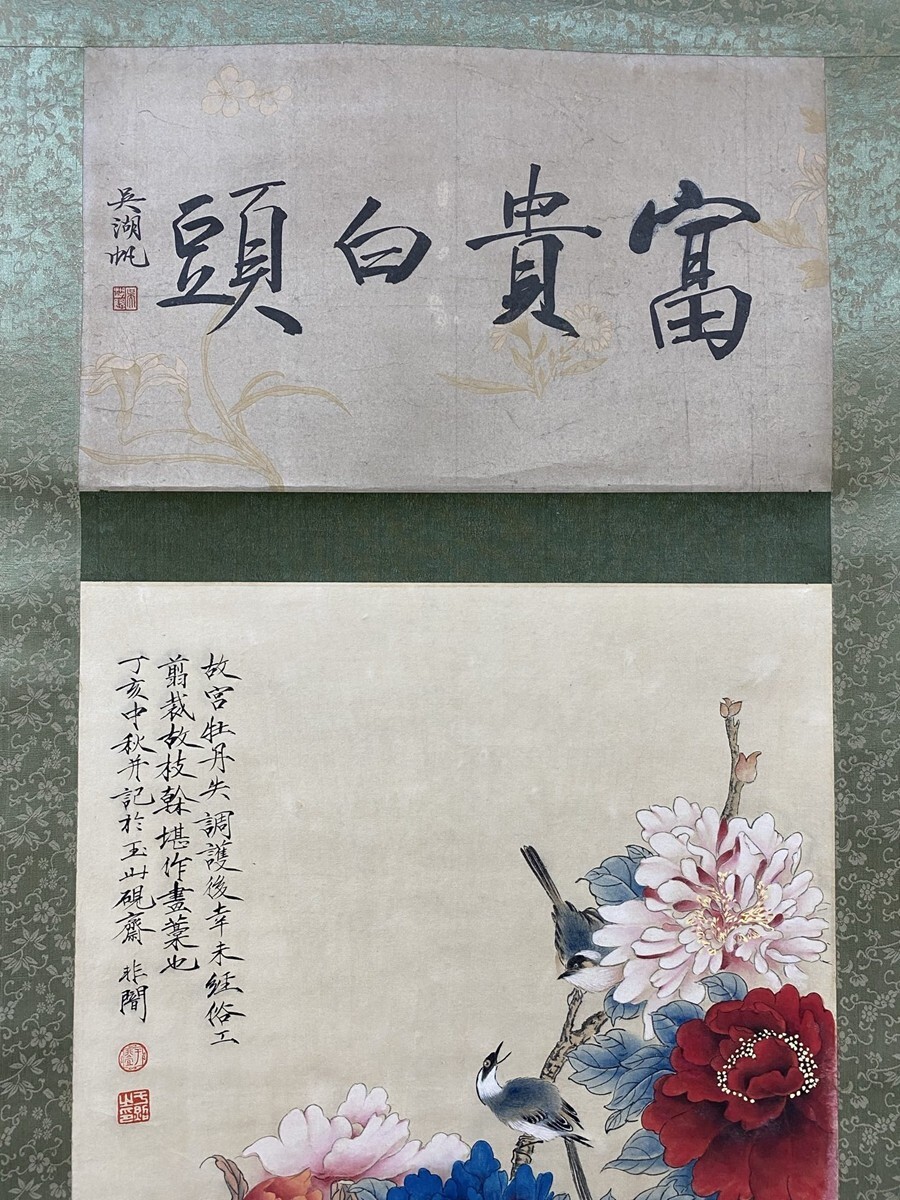 富貴白頭
吳湖帆
故宮牡丹失調護後幸未經俗工
翦裁故枝榦堪作畫藁也
丁亥中秋并記於玉山硯齋 非闇